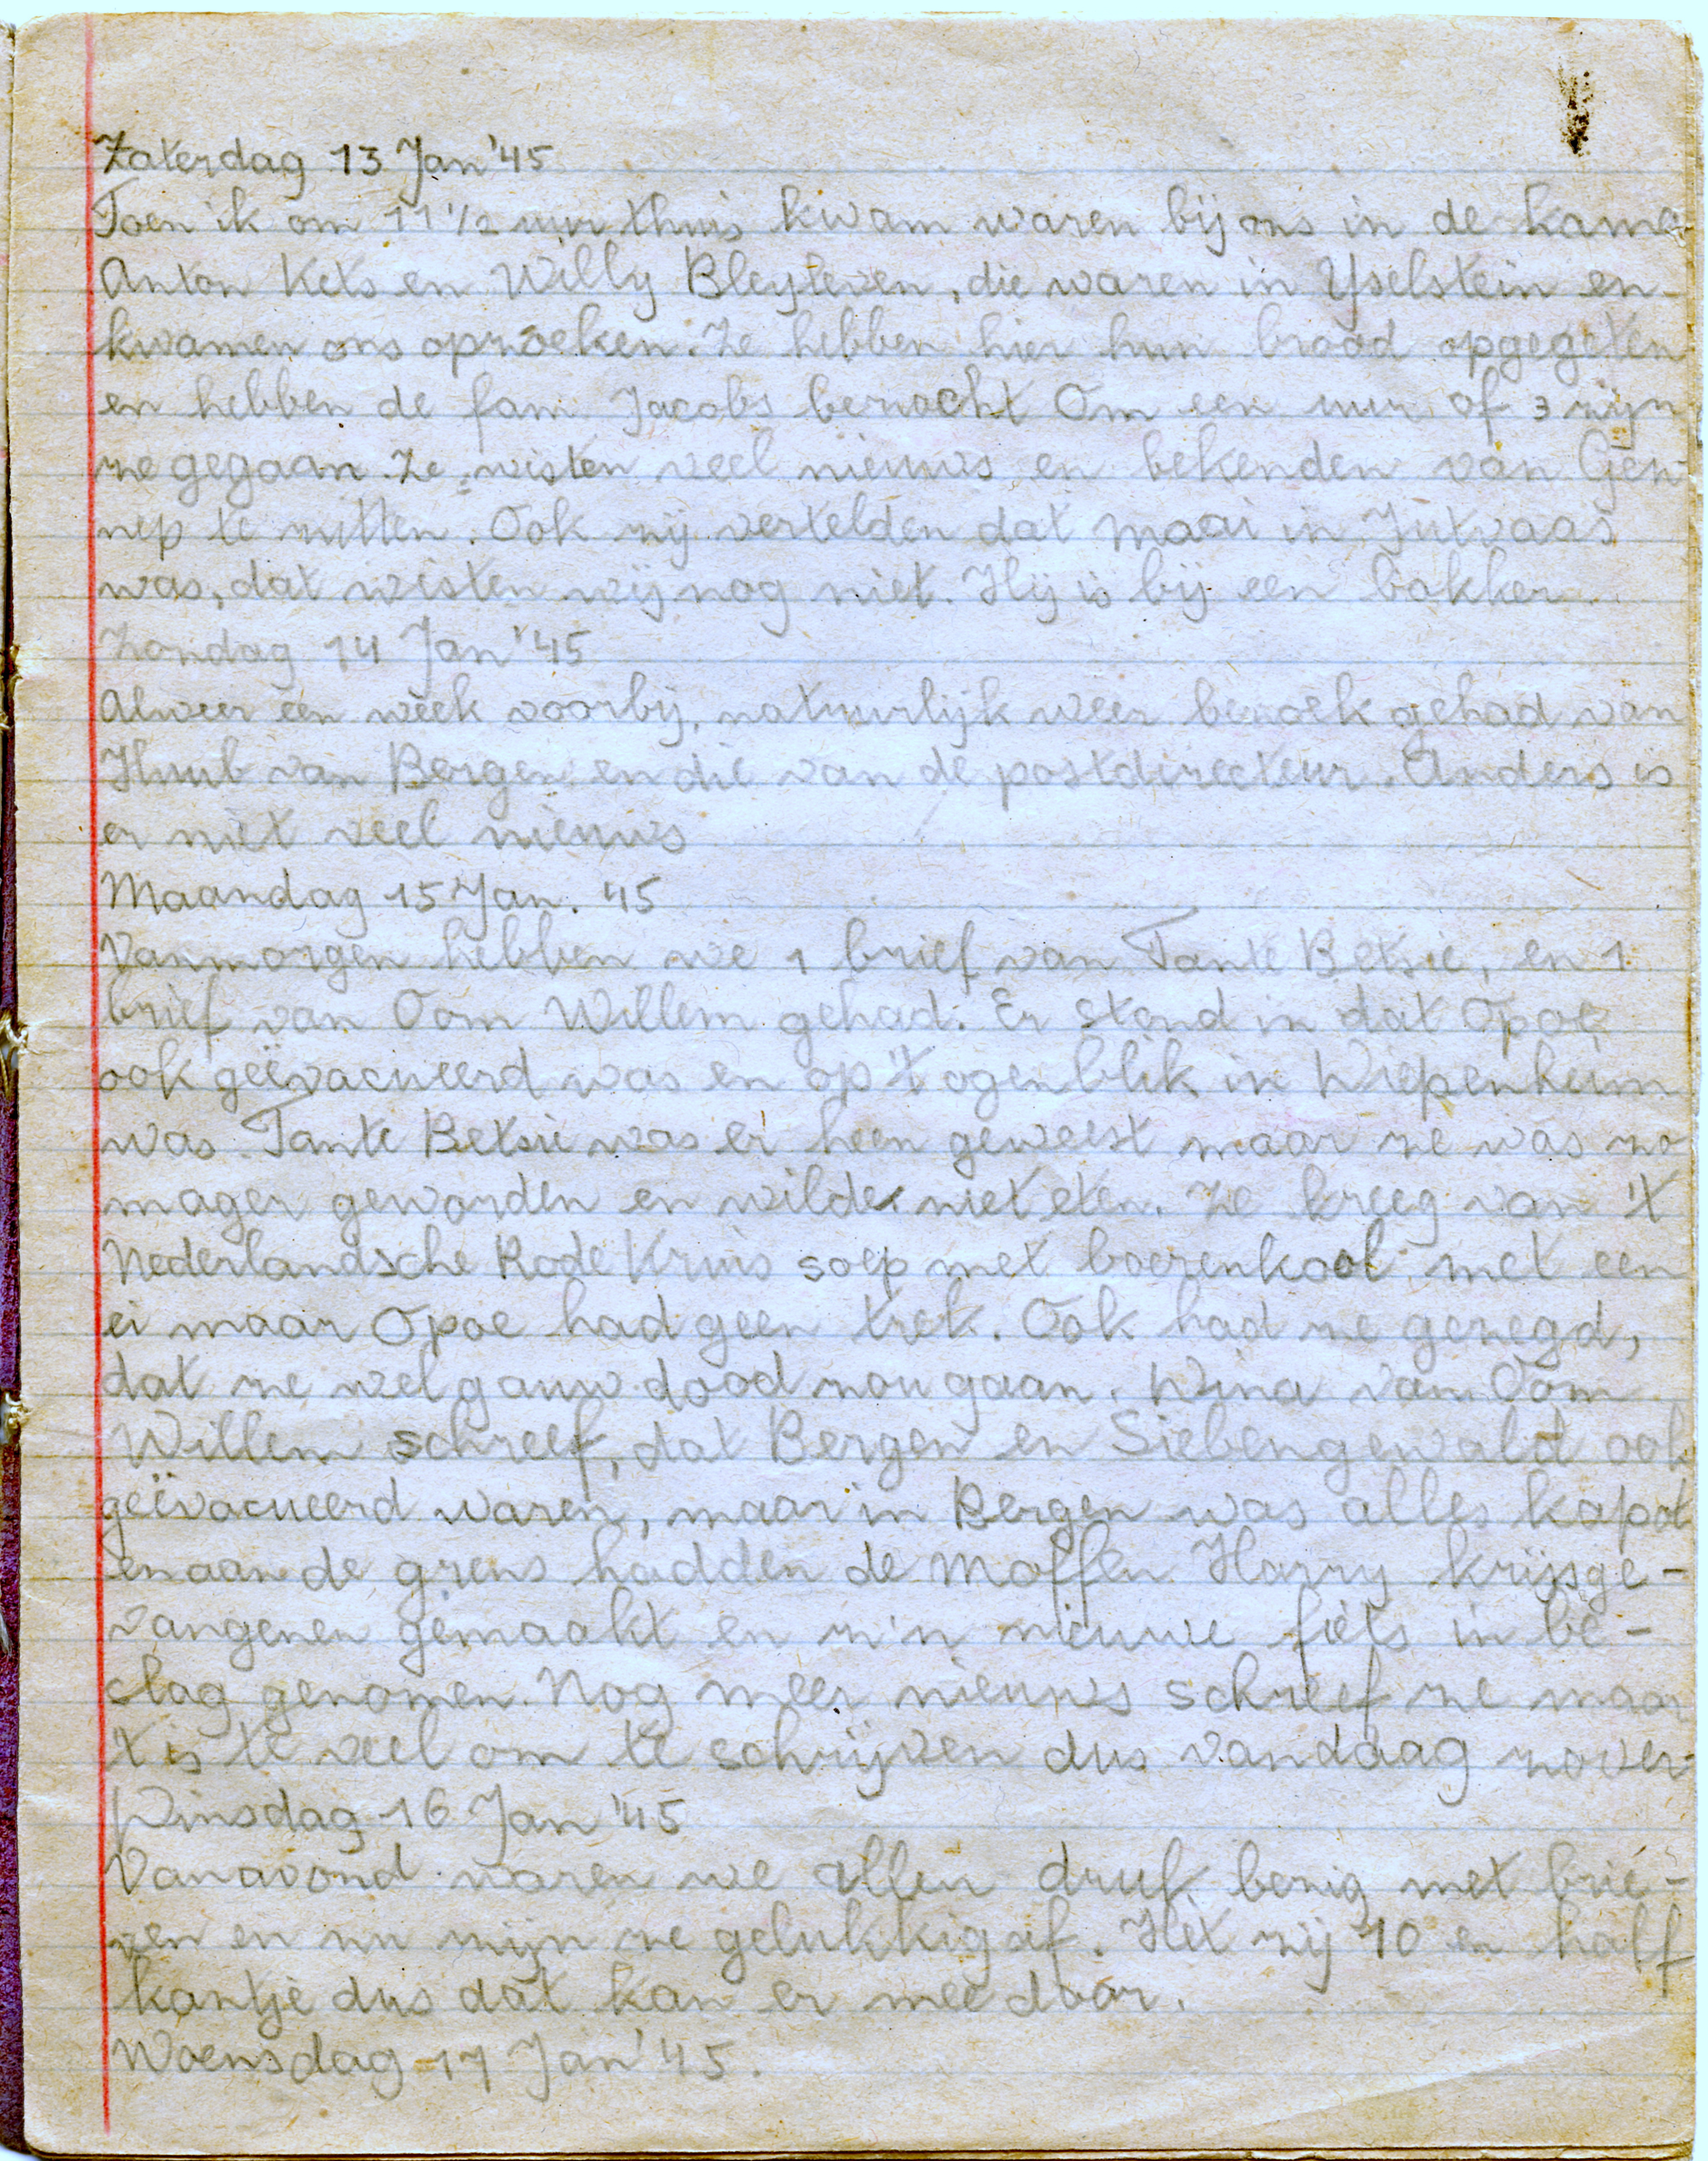 Zaterdag 13 Jan '45
Toen ik om 11 1/2 uur thuis kwam waren bij ons in de kamer
Anton Kets en Willy Bleyleven, die waren in Yselstein en
kwamen ons opzoeken. Ze hebben hier hun brood opgegeten
en hebben de fam. Jacobs bezocht Om een uur of 3 zijn
ze gegaan. Ze wisten veel nieuws en bekenden van Gen-
nep te zitten. Ook zij vertelden dat Maai in Jutvaas
was, dat wisten wij nog niet. Hij is bij een bakker.
Zondag 14 Jan '45
Alweer een week voorbij, natuurlijk weer bezoek gehad van
Huub van Bergen en die van de postdirecteur. Anders is
er niet veel nieuws
Maandag 15 Jan. '45
Vanmorgen hebben we 1 brief van Tante Betsie, en 1
brief van Oom Willem gehad. Er stond in dat Opoe
ook geëvacueerd was en op 't ogenblik in Wiepenheim
was. Tante Betsie was er heen geweest maar ze was zo
mager geworden en wilde niet eten. Ze kreeg van 't
Nederlandsche Rode Kruis soep met boerenkool met een
ei maar Opoe had geen trek. Ook had ze gezegd,
dat ze wel gauw dood zou gaan. Wina van Oom
Willem schreef, dat Bergen en Siebengewald ook
geëvacueerd waren, maar in Bergen was alles kapot
en aan de grens hadden de Moffen Harry krijsge-
vangenen gemaakt en z'n nieuwe fiets in be-
slag genomen. Nog meer nieuws schreef ze maar
't is te veel om te schrijven dus vandaag zover
Dinsdag 16 Jan '45
Vanavond waren we allen druk bezig met brie-
ven en nu zijn ze gelukkig af. Het zij 10 en half
kantje dus dat kan er mee door.
Woensdag 17 Jan '45.